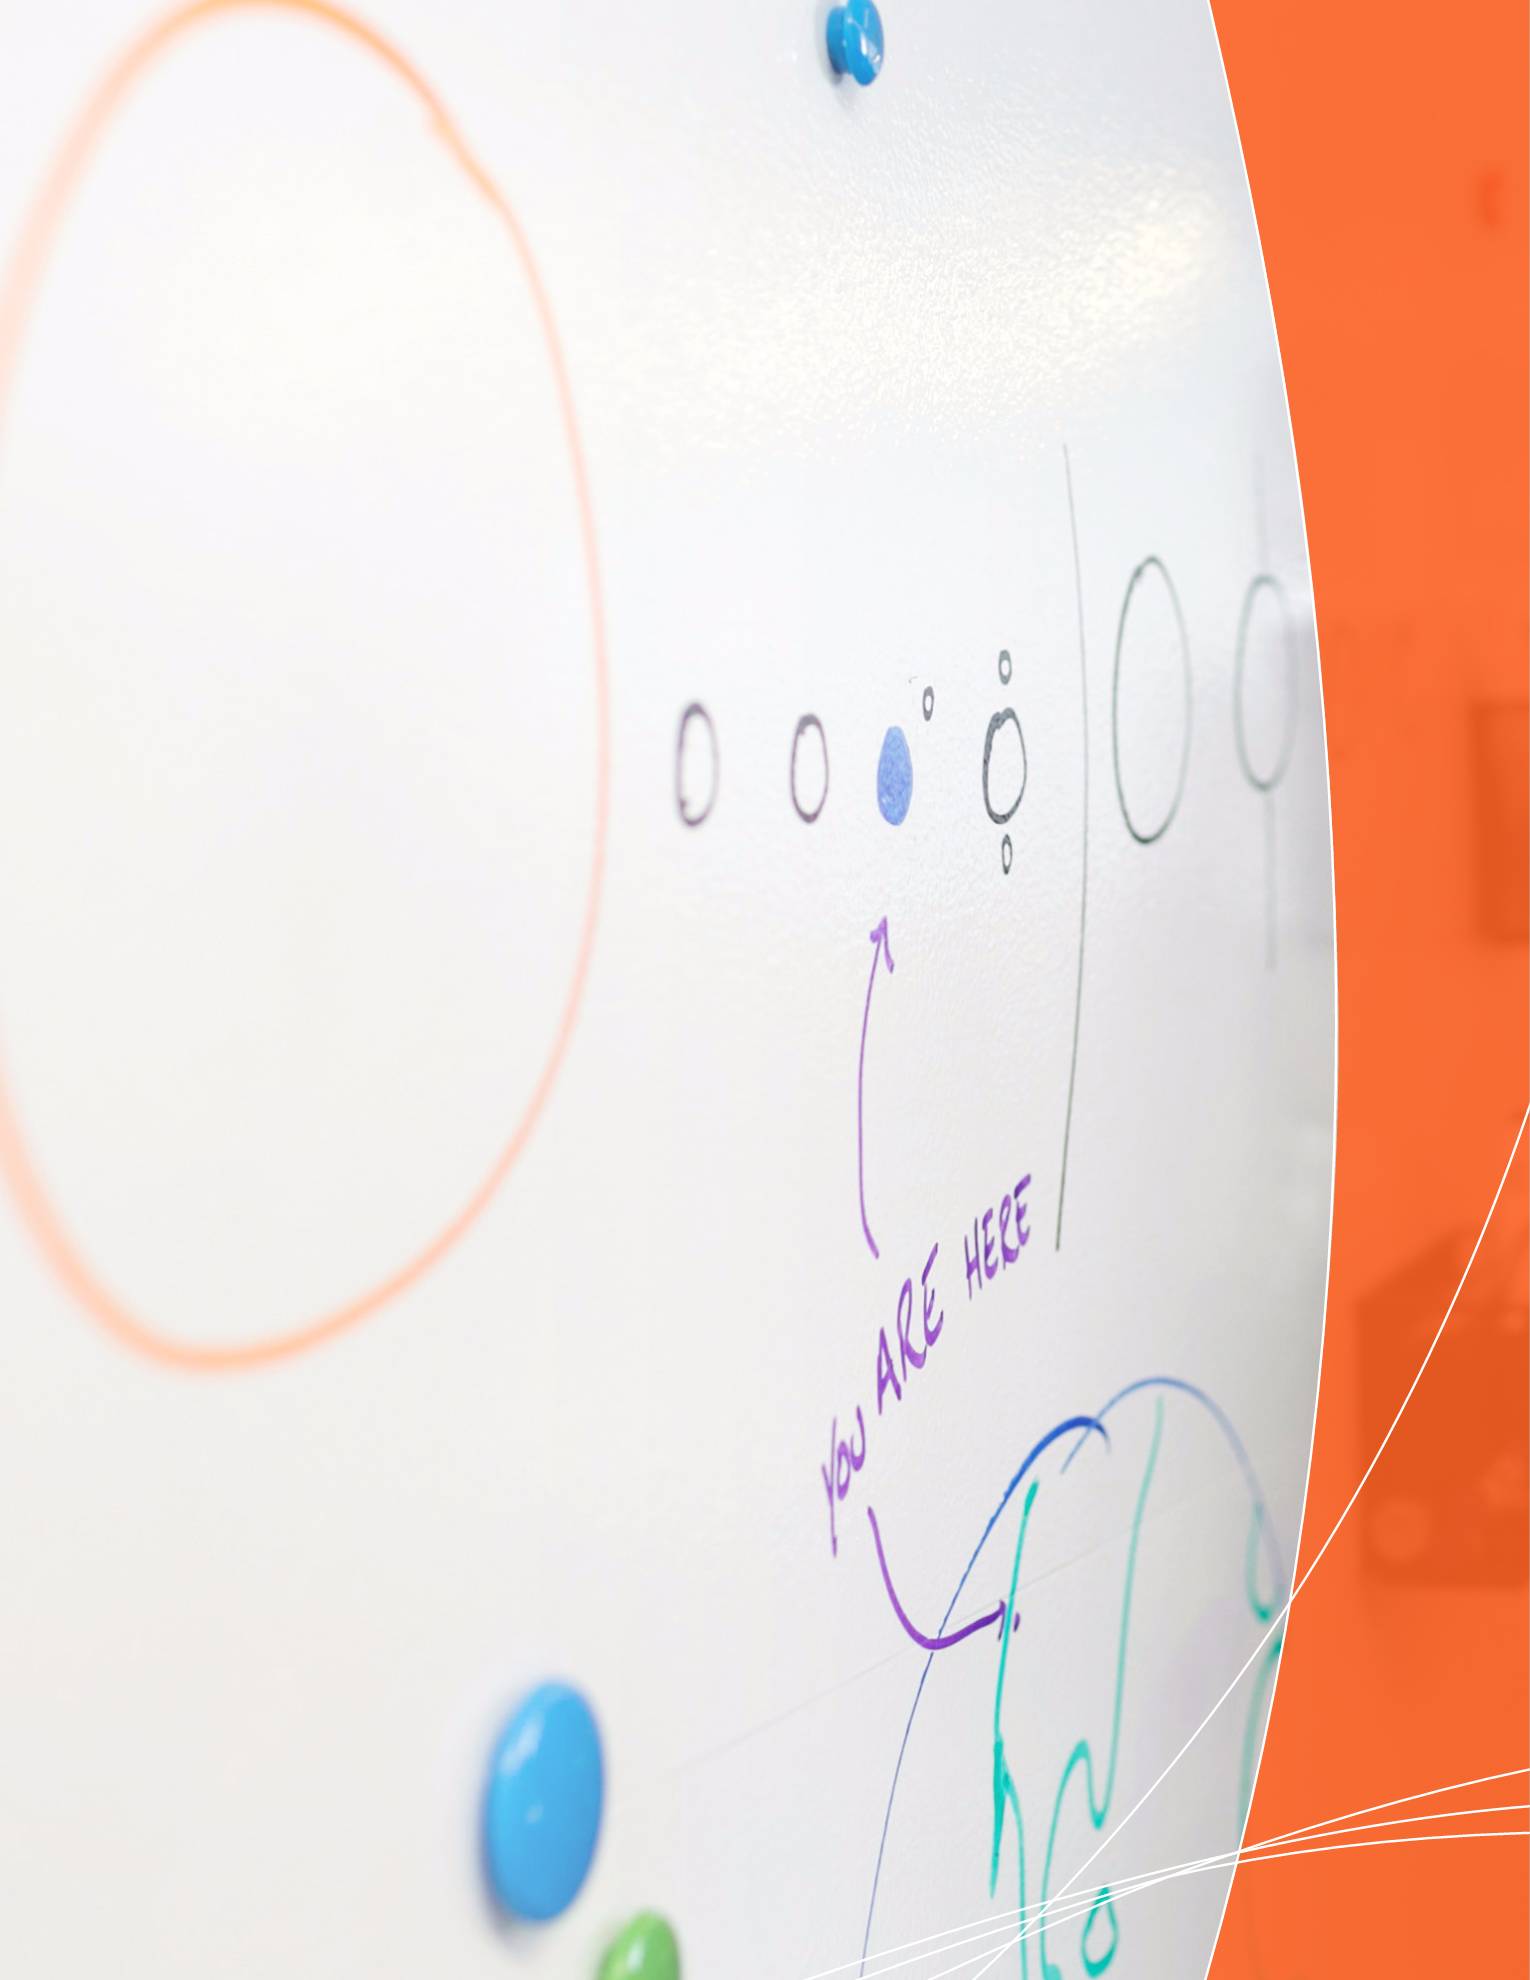 YOU ARE HERE